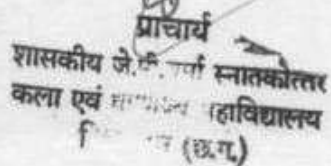 प्राचार्य
शासकीय जे.पी.वर्मा स्नातकोत्तर
कला एवं महाविद्यालय
(छ.ग.)